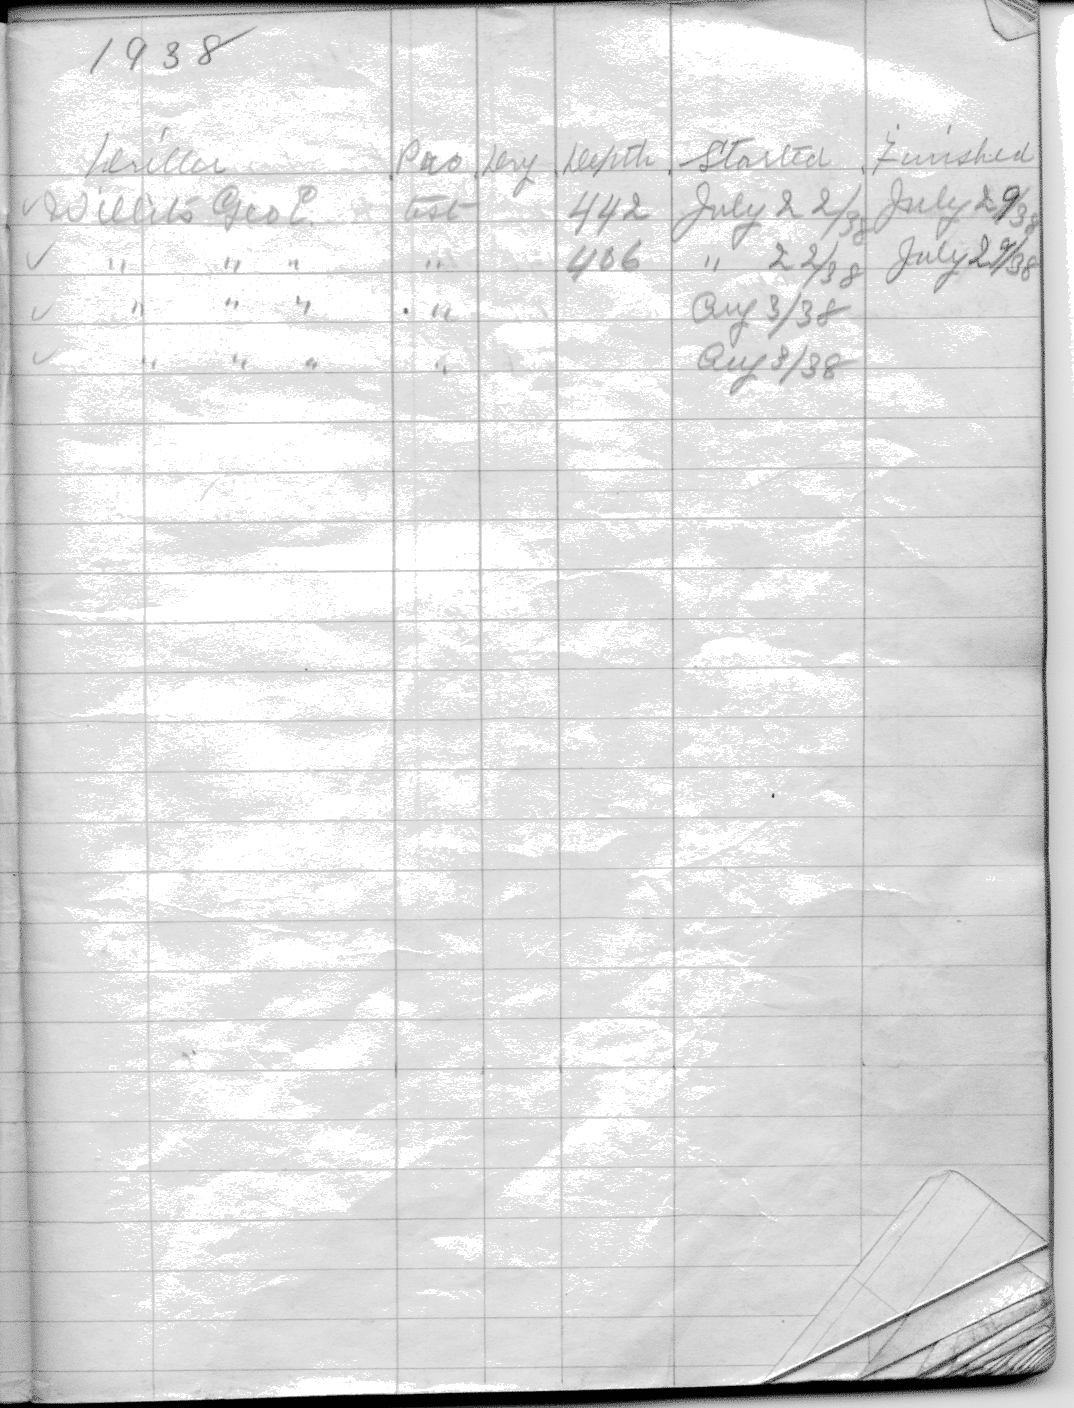 1938
Driller Pro Dry Depth Started Finished
✓ Willits Geo E. est 442 July 22/38 July 29/38
✓ " " " " 406 " 22/38 July 29/38
✓ " " " " Aug 3/38
✓ " " " " Aug 3/38